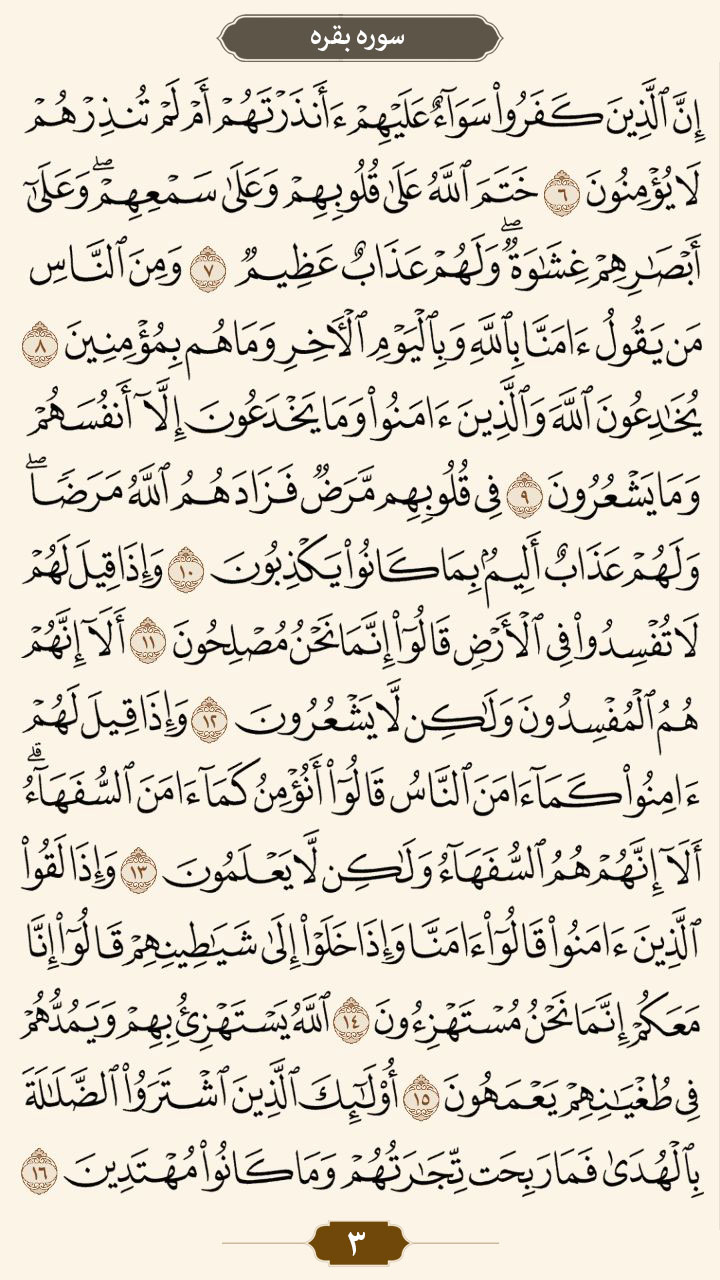 سوره بقره
إِنَّ ٱلَّذِينَ كَفَرُوا۟ سَوَآءٌ عَلَيْهِمْ ءَأَنذَرْتَهُمْ أَمْ لَمْ تُنذِرْهُمْ
لَا يُؤْمِنُونَ ٦ خَتَمَ ٱللَّهُ عَلَىٰ قُلُوبِهِمْ وَعَلَىٰ سَمْعِهِمْ ۖ وَعَلَىٰٓ
أَبْصَـٰرِهِمْ غِشَـٰوَةٌ ۖ وَلَهُمْ عَذَابٌ عَظِيمٌ ٧ وَمِنَ ٱلنَّاسِ
مَن يَقُولُ ءَامَنَّا بِٱللَّهِ وَبِٱلْيَوْمِ ٱلْـَٔاخِرِ وَمَا هُم بِمُؤْمِنِينَ ٨
يُخَـٰدِعُونَ ٱللَّهَ وَٱلَّذِينَ ءَامَنُوا۟ وَمَا يَخْدَعُونَ إِلَّآ أَنفُسَهُمْ
وَمَا يَشْعُرُونَ ٩ فِى قُلُوبِهِم مَّرَضٌ فَزَادَهُمُ ٱللَّهُ مَرَضًا ۖ
وَلَهُمْ عَذَابٌ أَلِيمٌۢ بِمَا كَانُوا۟ يَكْذِبُونَ ١٠ وَإِذَا قِيلَ لَهُمْ
لَا تُفْسِدُوا۟ فِى ٱلْأَرْضِ قَالُوٓا۟ إِنَّمَا نَحْنُ مُصْلِحُونَ ١١ أَلَآ إِنَّهُمْ
هُمُ ٱلْمُفْسِدُونَ وَلَـٰكِن لَّا يَشْعُرُونَ ١٢ وَإِذَا قِيلَ لَهُمْ
ءَامِنُوا۟ كَمَآ ءَامَنَ ٱلنَّاسُ قَالُوٓا۟ أَنُؤْمِنُ كَمَآ ءَامَنَ ٱلسُّفَهَآءُ ۗ
أَلَآ إِنَّهُمْ هُمُ ٱلسُّفَهَآءُ وَلَـٰكِن لَّا يَعْلَمُونَ ١٣ وَإِذَا لَقُوا۟
ٱلَّذِينَ ءَامَنُوا۟ قَالُوٓا۟ ءَامَنَّا وَإِذَا خَلَوْا۟ إِلَىٰ شَيَـٰطِينِهِمْ قَالُوٓا۟ إِنَّا
مَعَكُمْ إِنَّمَا نَحْنُ مُسْتَهْزِءُونَ ١٤ ٱللَّهُ يَسْتَهْزِئُ بِهِمْ وَيَمُدُّهُمْ
فِى طُغْيَـٰنِهِمْ يَعْمَهُونَ ١٥ أُو۟لَـٰٓئِكَ ٱلَّذِينَ ٱشْتَرَوُا۟ ٱلضَّلَـٰلَةَ
بِٱلْهُدَىٰ فَمَا رَبِحَت تِّجَـٰرَتُهُمْ وَمَا كَانُوا۟ مُهْتَدِينَ ١٦
٣